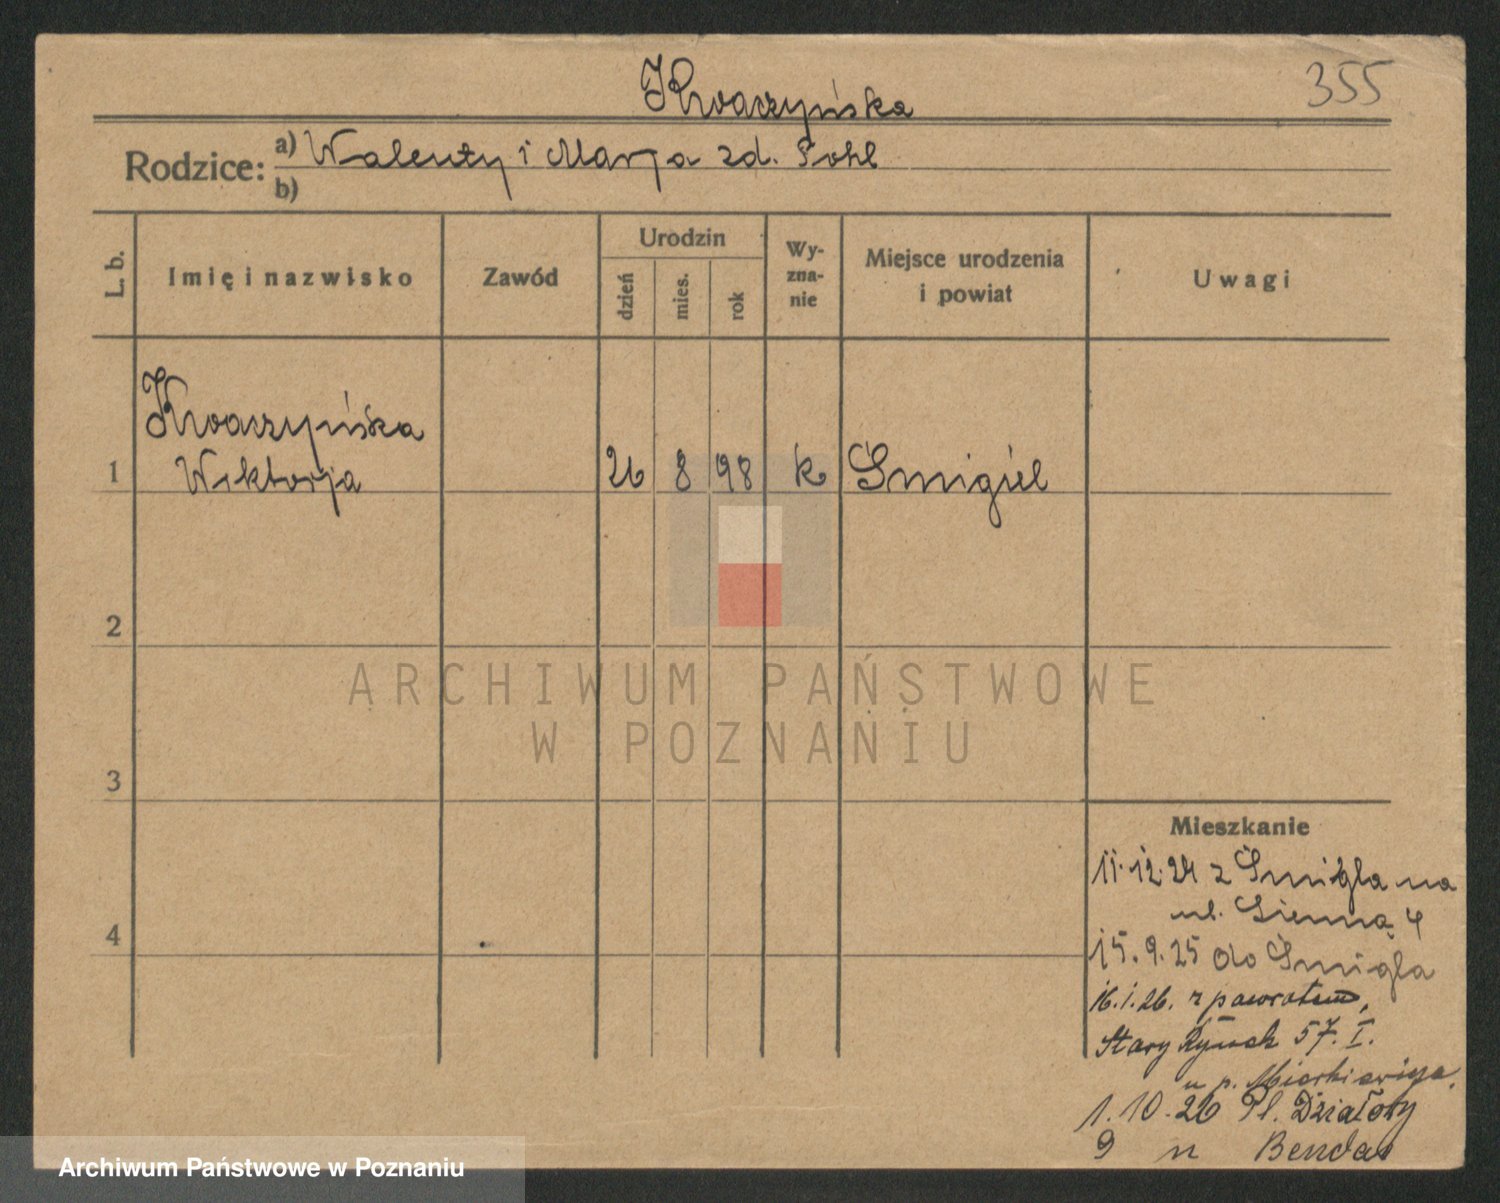 Kwaczyńska
355
Rodzice:
a) Walenty i Marja zd. Pohl
b)
L. b.
Imię i nazwisko
Zawód
Urodzin
dzień
mies.
rok
Wy-
zna-
nie
Miejsce urodzenia
i powiat
Uwagi
1
Kwaczyńska
Wiktorja
26 8 98 k Śmigiel
2
ARCHIWUM PAŃSTWOWE
W POZNANIU
3
4
Mieszkanie
11.12.24 z Śmigla na
ul. Sienną 4
15.9.25 do Śmigla
16.1.26. z powrotem,
Stary Rynek 57. I.
u p.
1.10.26 Pl. Działowy
9 u Benda
Archiwum Państwowe w Poznaniu